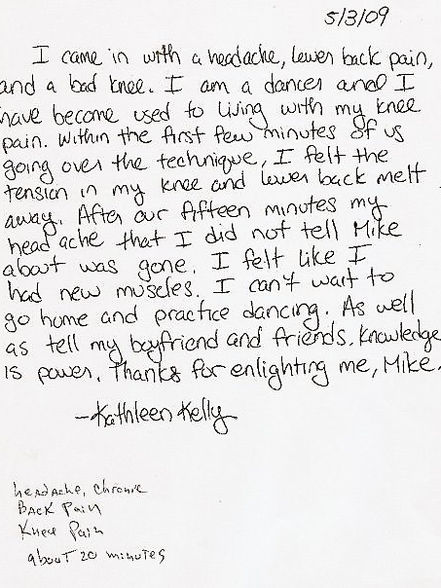 5/3/09
I came in with a headache, lower back pain,
and a bad knee. I am a dancer and I
have become used to living with my knee
pain. Within the first few minutes of us
going over the technique, I felt the
tension in my knee and lower back melt
away. After our fifteen minutes my
head ache that I did not tell Mike
about was gone. I felt like I
had new muscles. I can't wait to
go home and practice dancing. As well
as tell my boyfriend and friends. Knowledge
is power. Thanks for enlighting me, Mike.
-Kathleen Kelly
headache, chronic
Back Pain
Knee Pain
about 20 minutes